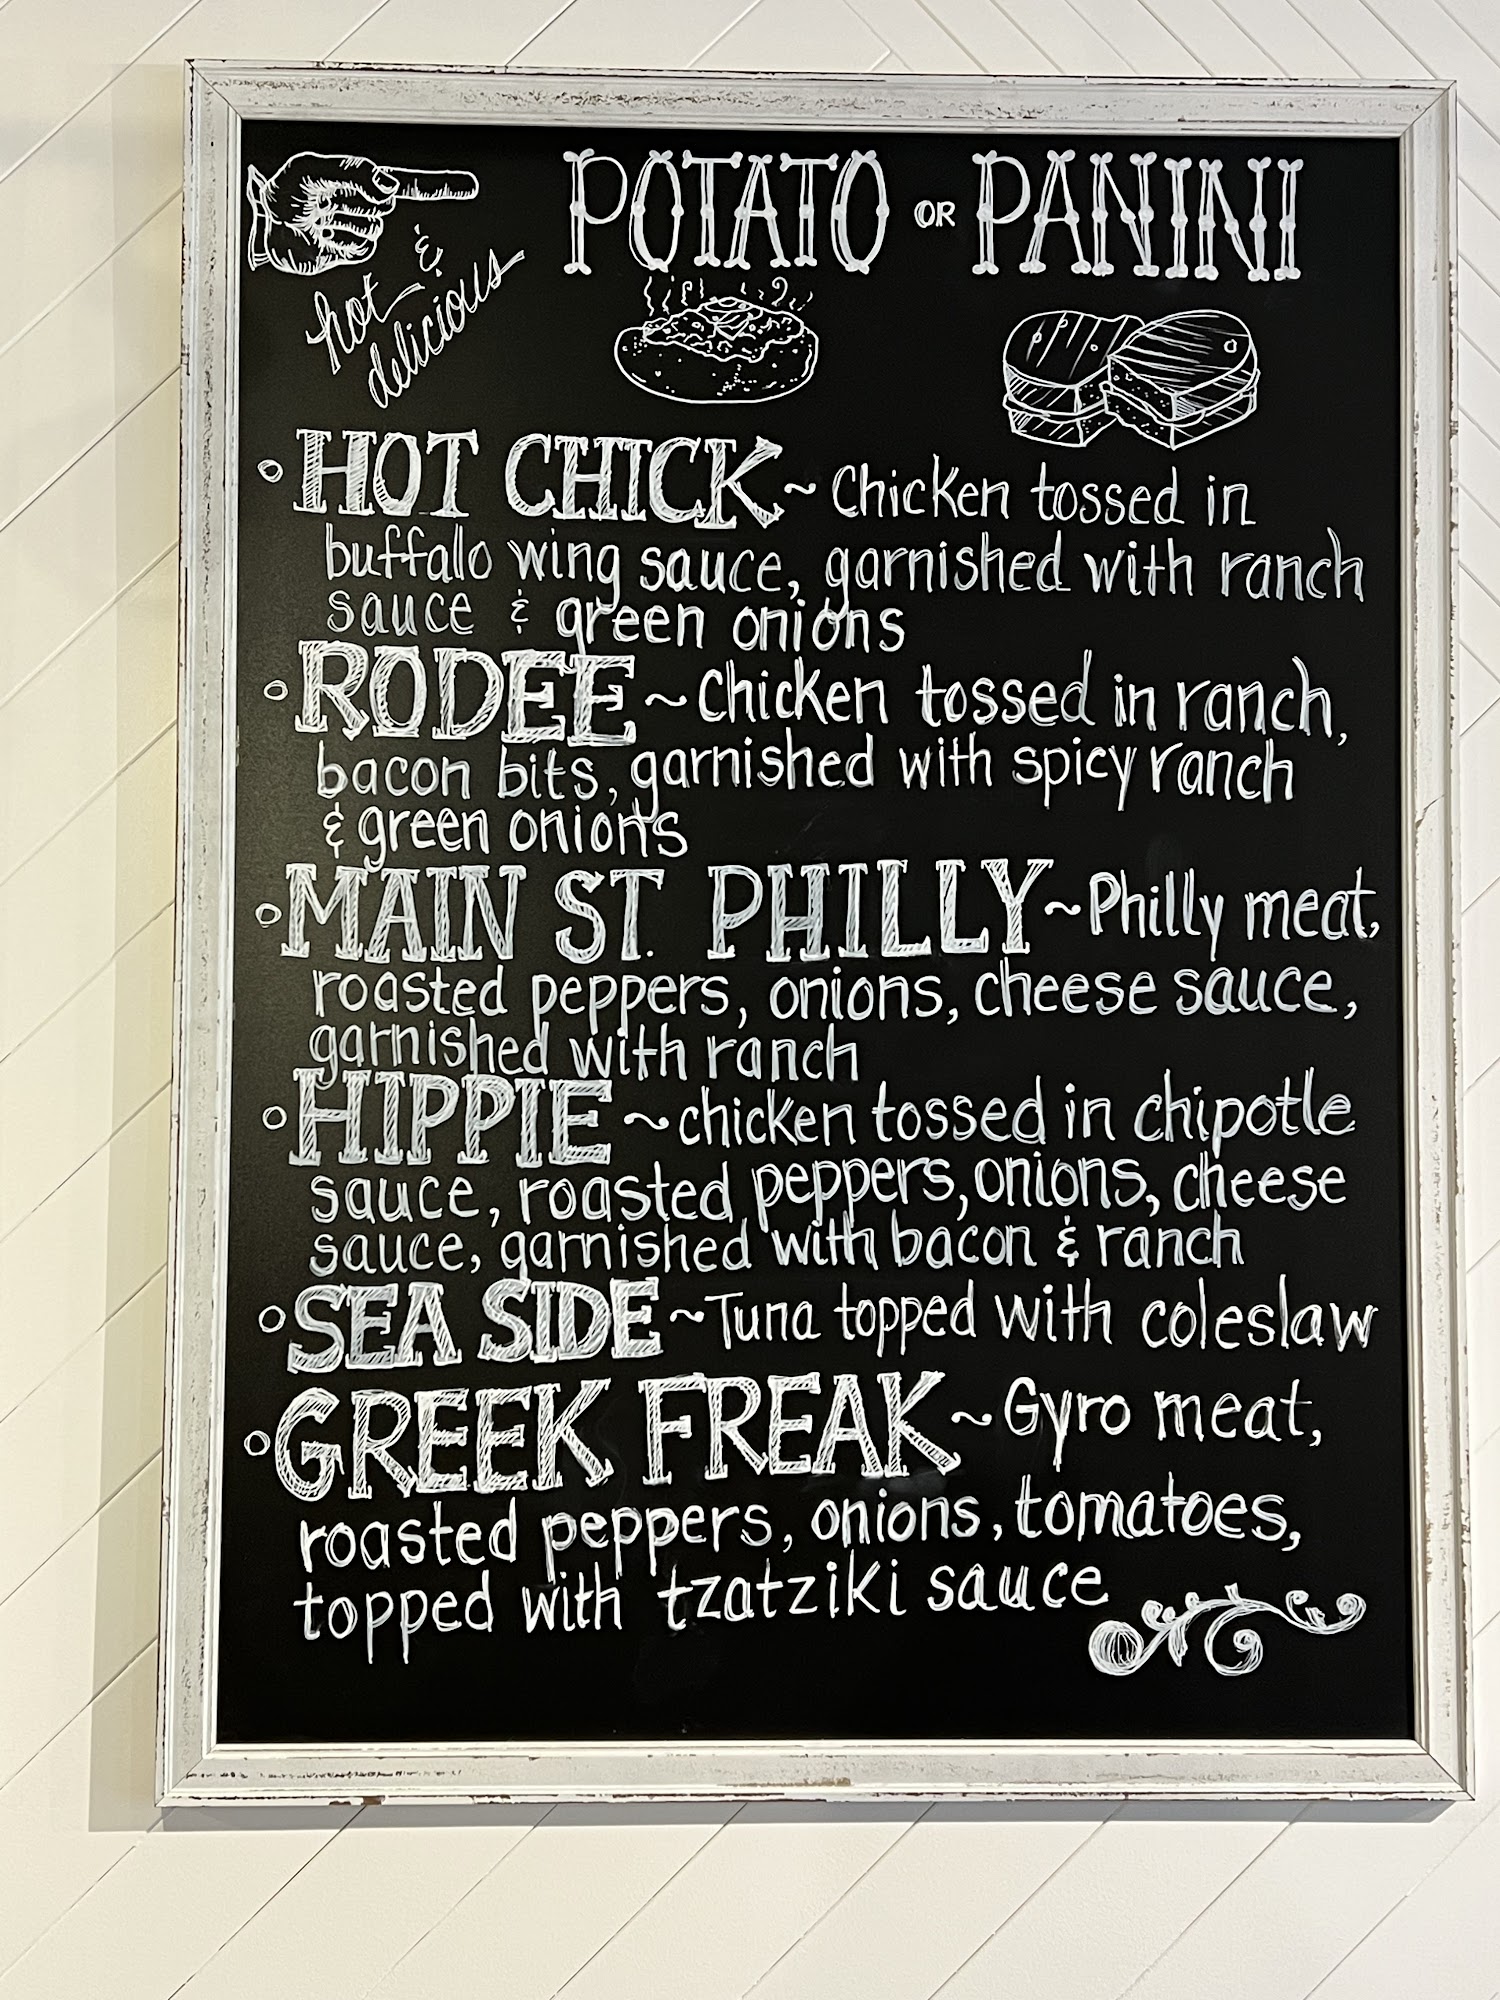 POTATO OR PANINI
hot &
delicious
• HOT CHICK ~ Chicken tossed in
buffalo wing sauce, garnished with ranch
sauce & green onions
• RODEE ~ Chicken tossed in ranch,
bacon bits, garnished with spicy ranch
& green onions
• MAIN ST. PHILLY ~ Philly meat,
roasted peppers, onions, cheese sauce,
garnished with ranch
• HIPPIE ~ chicken tossed in chipotle
sauce, roasted peppers, onions, cheese
sauce, garnished with bacon & ranch
• SEA SIDE ~ Tuna topped with coleslaw
• GREEK FREAK ~ Gyro meat,
roasted peppers, onions, tomatoes,
topped with tzatziki sauce